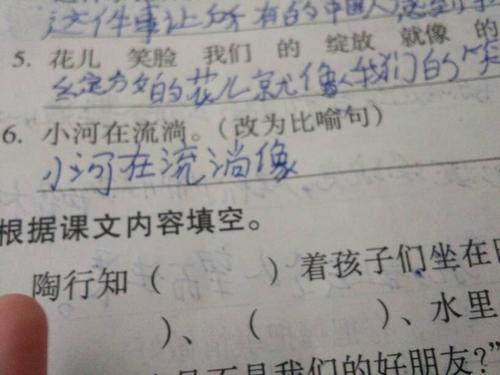 这件事让所有的中国人感到
5. 花儿 笑脸 我们 的 绽放 就像 的
绽放的花儿就像我们的笑
6. 小河在流淌。(改为比喻句)
小河在流淌像
根据课文内容填空。
陶行知( )着孩子们坐在
)、( )、水里
是我们的好朋友?”